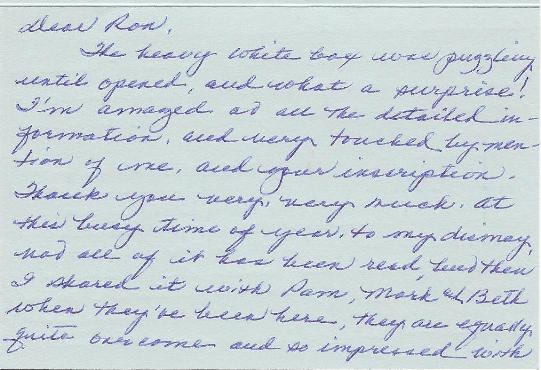 Dear Ron,
The heavy white box was puzzling
until opened, and what a surprise!
I'm amazed at all the detailed in-
formation, and very touched by men-
tion of me, and your inscription.
Thank you very, very much. At
this busy time of year, to my dismay,
not all of it has been read, but then
I shared it with Pam, Mark & Beth
when they've been here, they are equally
quite overcome and so impressed with